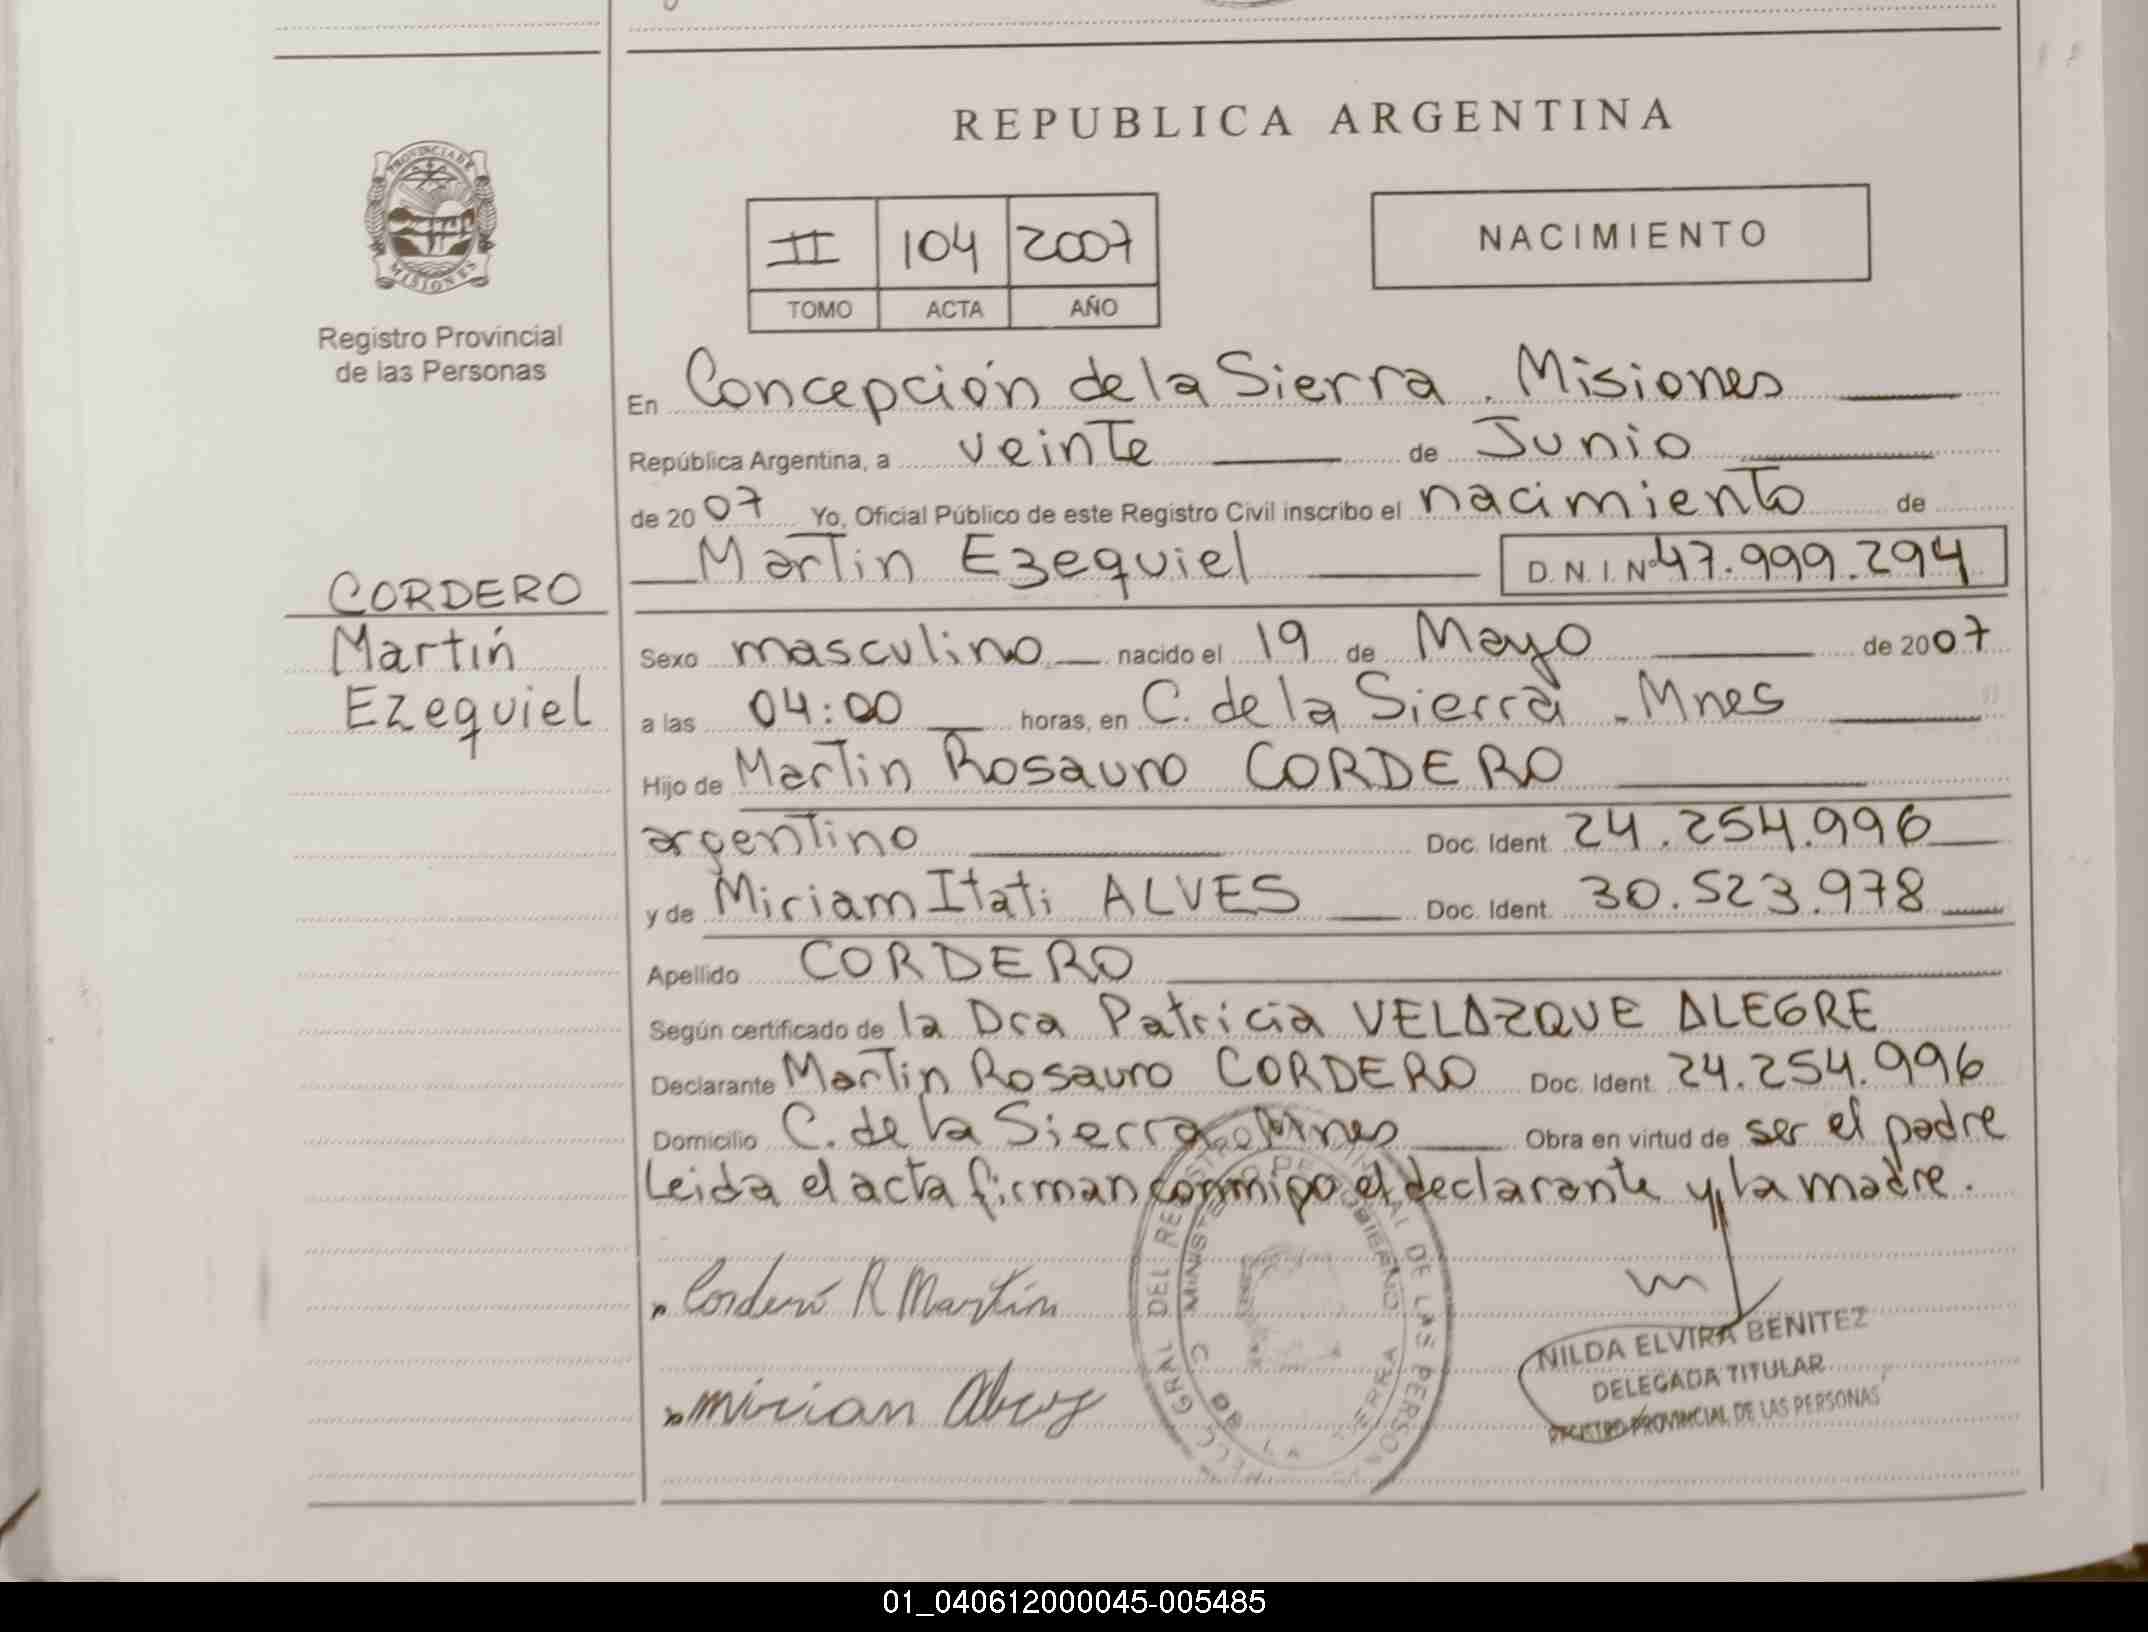 REPUBLICA ARGENTINA
PROVINCIA DE
MISIONES
Registro Provincial
de las Personas
II 104 2007
TOMO ACTA AÑO
NACIMIENTO
En Concepción de la Sierra. Misiones
República Argentina, a veinte de Junio
de 2007 Yo, Oficial Público de este Registro Civil inscribo el nacimiento de
Martin Ezequiel D.N.I. Nº 47.999.294
CORDERO
Martín
Ezequiel
Sexo masculino nacido el 19 de Mayo de 2007
a las 04:00 horas, en C. de la Sierra. Mnes
Hijo de Martin Rosauro CORDERO
argentino Doc. Ident. 24.254.996
y de Miriam Itati ALVES Doc. Ident. 30.523.978
Apellido CORDERO
Según certificado de la Dra Patricia VELAZQUE ALEGRE
Declarante Martin Rosauro CORDERO Doc. Ident. 24.254.996
Domicilio C. de la Sierra Mnes Obra en virtud de ser el padre
Leida el acta firman conmigo el declarante y la madre.
Cordero R Martin
mirian
NILDA ELVIRA BENITEZ
DELEGADA TITULAR
REGISTRO PROVINCIAL DE LAS PERSONAS
GRAL DEL DE LAS PERSONAS
MINISTERIO DE GOBIERNO
01_040612000045-005485